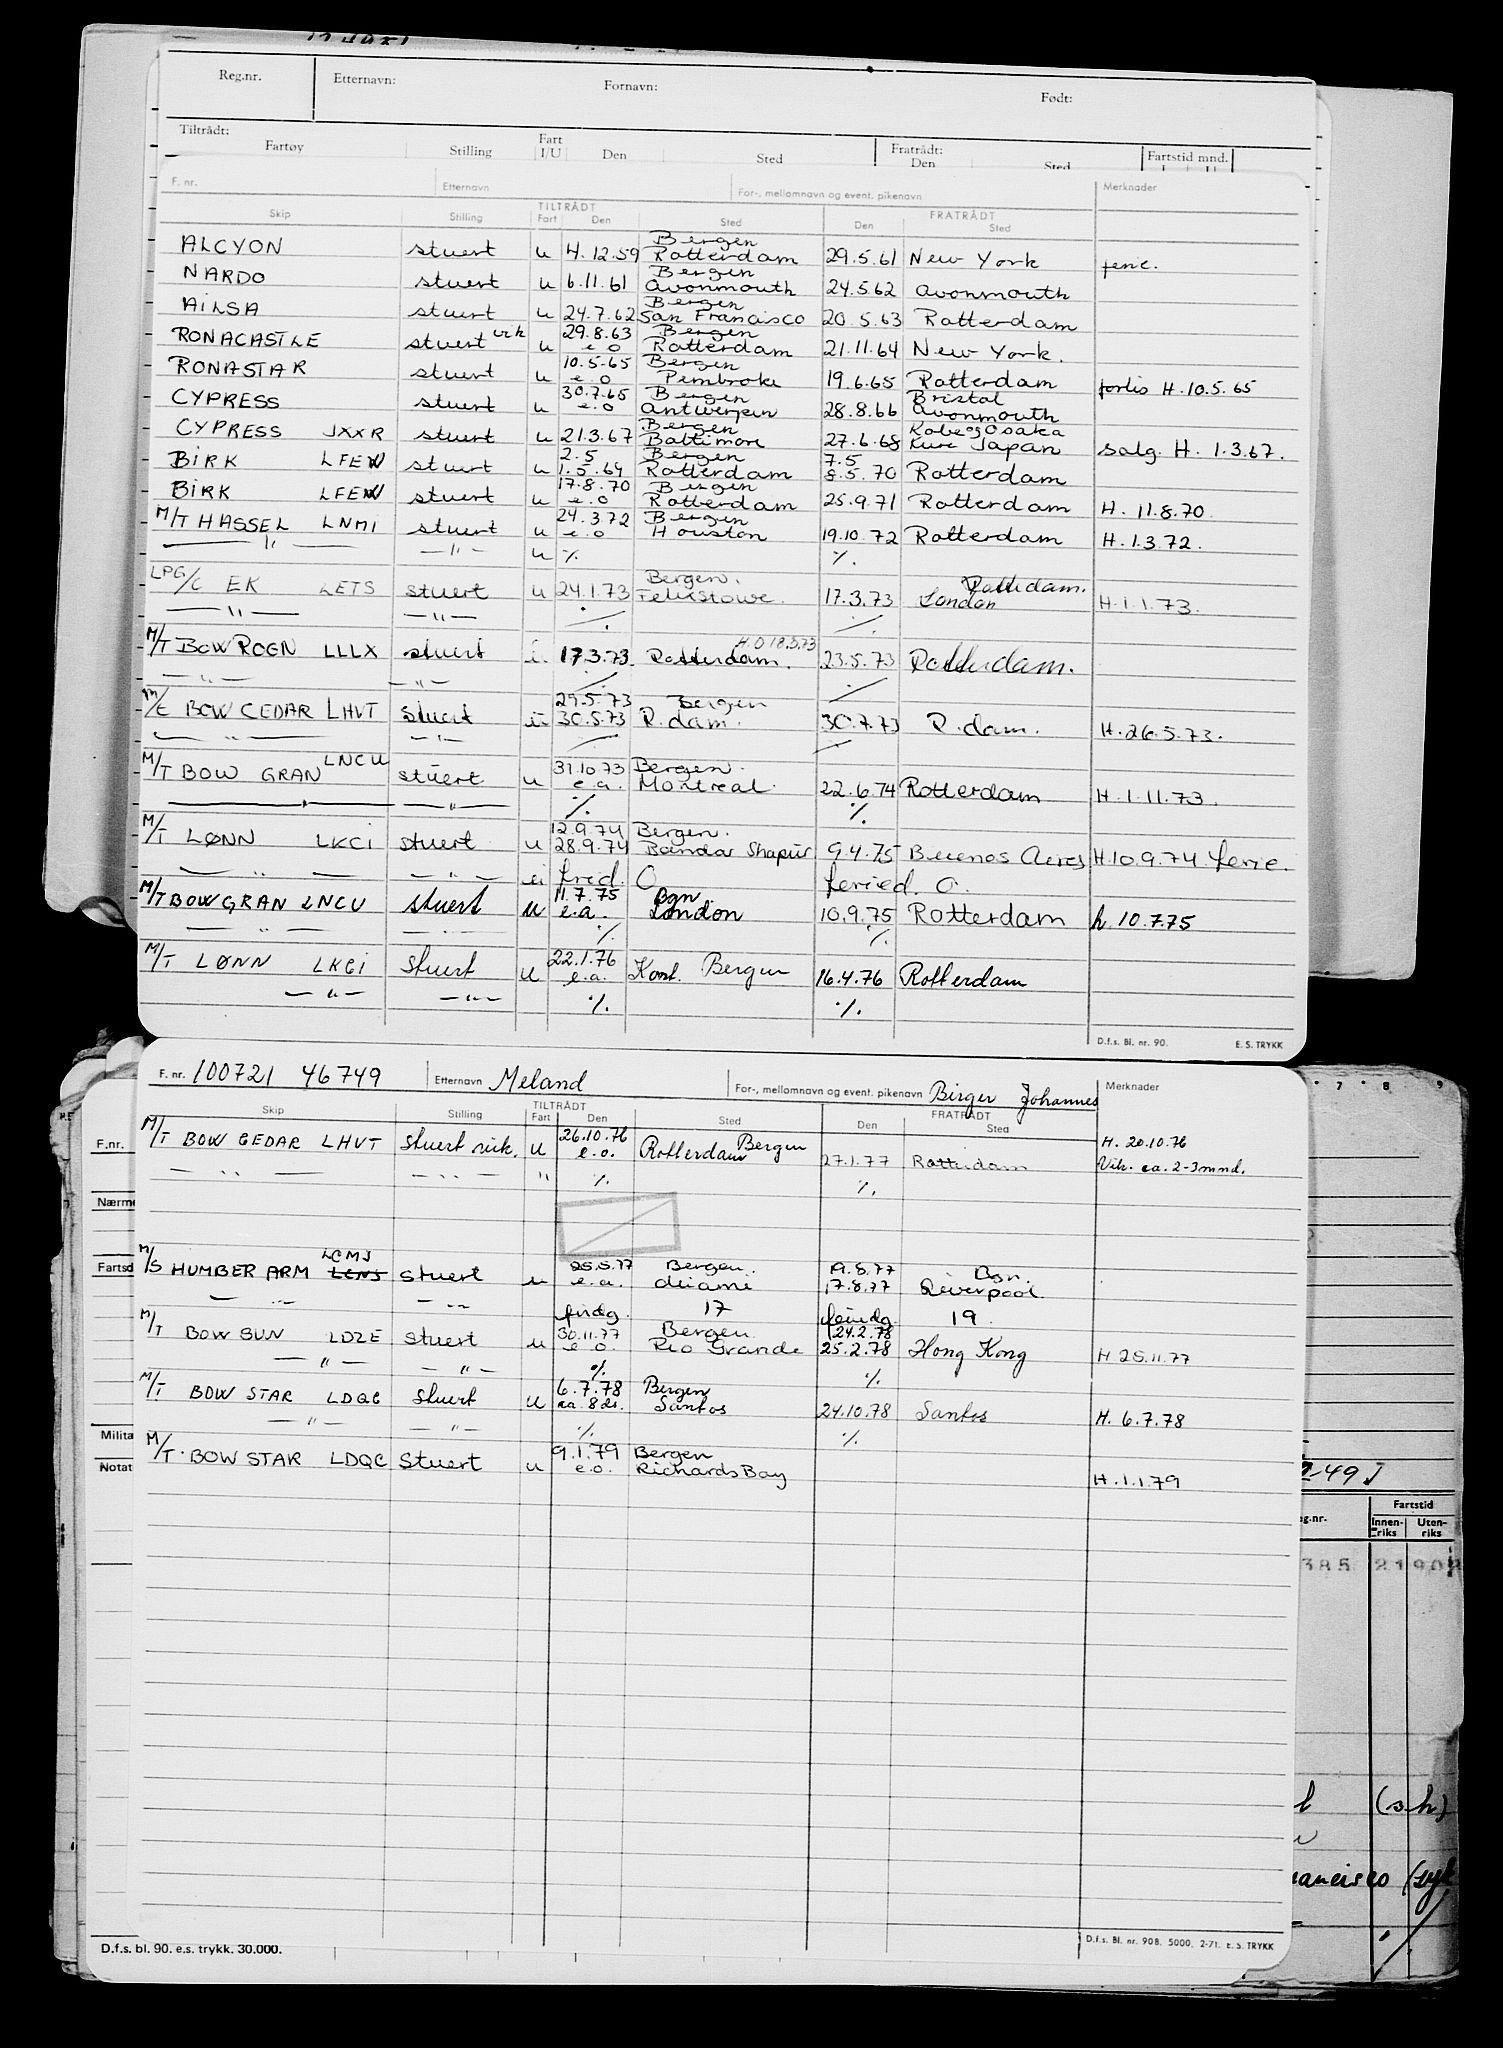 Reg.nr. Etternavn: Fornavn: Født:
Tiltrådt: Fratrådt:
Fartøy Stilling Fart I/U Den Sted Den Sted Fartstid mnd.
F. nr. Etternavn For-, mellomnavn og event. pikenavn Merknader
TILTRÅDT FRATRÅDT
Skip Stilling Fart Den Sted Den Sted
Bergen
ALCYON stuert u 4.12.59 Rotterdam 29.5.61 New York ferie.
Bergen
NARDO stuert u 6.11.61 Avonmouth 24.5.62 Avonmouth
Bergen
AILSA stuert u 24.7.62 San Francisco 20.5.63 Rotterdam
29.8.63 Bergen
RONACASTLE stuert vik u e.o Rotterdam 21.11.64 New York.
10.5.65 Bergen
RONASTAR stuert u e.o Pembroke 19.6.65 Rotterdam H. 10.5.65
30.7.65 Bergen Bristol
CYPRESS stuert u e.o Antwerpen 28.8.66 Avonmouth
Bergen Kobe og Osaka
CYPRESS JXXR stuert u 21.3.67 Baltimore 27.6.68 Kure Japan salg. H. 1.3.67.
2.5 Bergen 7.5
BIRK LFEW stuert u 1.5.69 Rotterdam 8.5.70 Rotterdam
17.8.70 Bergen
BIRK LFEW stuert u e.o Rotterdam 25.9.71 Rotterdam H. 11.8.70.
24.3.72 Bergen
M/T HASSEL LNMI stuert u e.o Houston 19.10.72 Rotterdam H. 1.3.72.
— " — — " — u %. %.
Bergen. Rotterdam.
LPG/C EK LETS stuert u 24.1.73 Felixstowe. 17.3.73 London H. 1.1.73.
— " — — " — %. %.
H.O 18.3.73
M/T BOW ROGN LLLX stuert 17.3.73. Rotterdam. 23.5.73 Rotterdam.
— " — — " — %. %.
29.5.73 Bergen
M/C BOW CEDAR LHVT stuert 30.5.73 R.dam. 30.7.73 R.dam. H. 26.5.73.
— " — — " — %. %.
LNCU 31.10.73 Bergen.
M/T BOW GRAN stuert u e.a. Montreal. 22.6.74 Rotterdam H. 1.11.73.
— " — — " — %. %.
12.9.74 Bergen.
M/T LØNN LKCI stuert u 28.9.74 Bandar Shapur 9.4.75 Buenos Aires H. 10.9.74. ferie.
— " — — " — O feried. O.
11.7.75 Bgn
M/T BOW GRAN LNCU stuert u e.a. London 10.9.75 Rotterdam h. 10.7.75
— " — — " — %. %.
22.1.76
M/T LØNN LKCI Stuert u e.a. Kont. Bergen 16.4.76 Rotterdam
— " — — " — %. %.
D.f.s. Bl. nr. 90. E. S. TRYKK
F. nr. 100721 46749 Etternavn Meland For-, mellomnavn og event. pikenavn Birger Johannes Merknader
TILTRÅDT FRATRÅDT
Skip Stilling Fart Den Sted Den Sted
26.10.76 Bergen H. 20.10.76
M/T BOW CEDAR LHVT Stuert vik. u e.o. Rotterdam 27.1.77 Rotterdam Vik. ca. 2-3 mnd.
— " — — " — " %. %.
LCMJ 25.5.77 Bergen. 19.8.77 Bgn.
M/S HUMBER ARM LCNJ Stuert u e.a. Miami 17.8.77 Liverpool
— " — — " — 17 19.
30.11.77 Bergen 24.2.78
M/T BOW SUN LDZE stuert u e.o. Rio Grande 25.2.78 Hong Kong H 25.11.77
— " — — " — %. %.
6.7.78 Bergen
M/T BOW STAR LDQC stuert u ca. 8 ds. Santos 24.10.78 Santos H. 6.7.78
— " — — " — %. %.
9.1.79 Bergen
M/T BOW STAR LDQC Stuert u e.o. Richards Bay H. 1.1.79
D.f.s. Bl. nr. 908. 5000. 2-71. E. S. TRYKK
F.nr.
Nærme
Fartsd
Milita
Notat
D.f.s. bl. 90. e.s. trykk. 30.000.
7 8 9
-49]
g.nr. Fartstid
Innen-riks Uten-riks
385 21 902
(s.h)
ancisco (syk